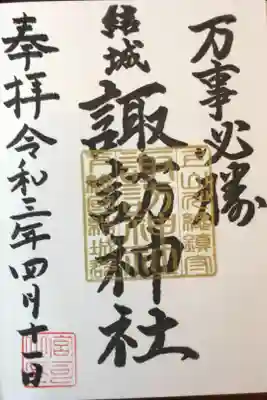 万事必勝
結城
諏訪神社
奉拝令和三年四月十一日